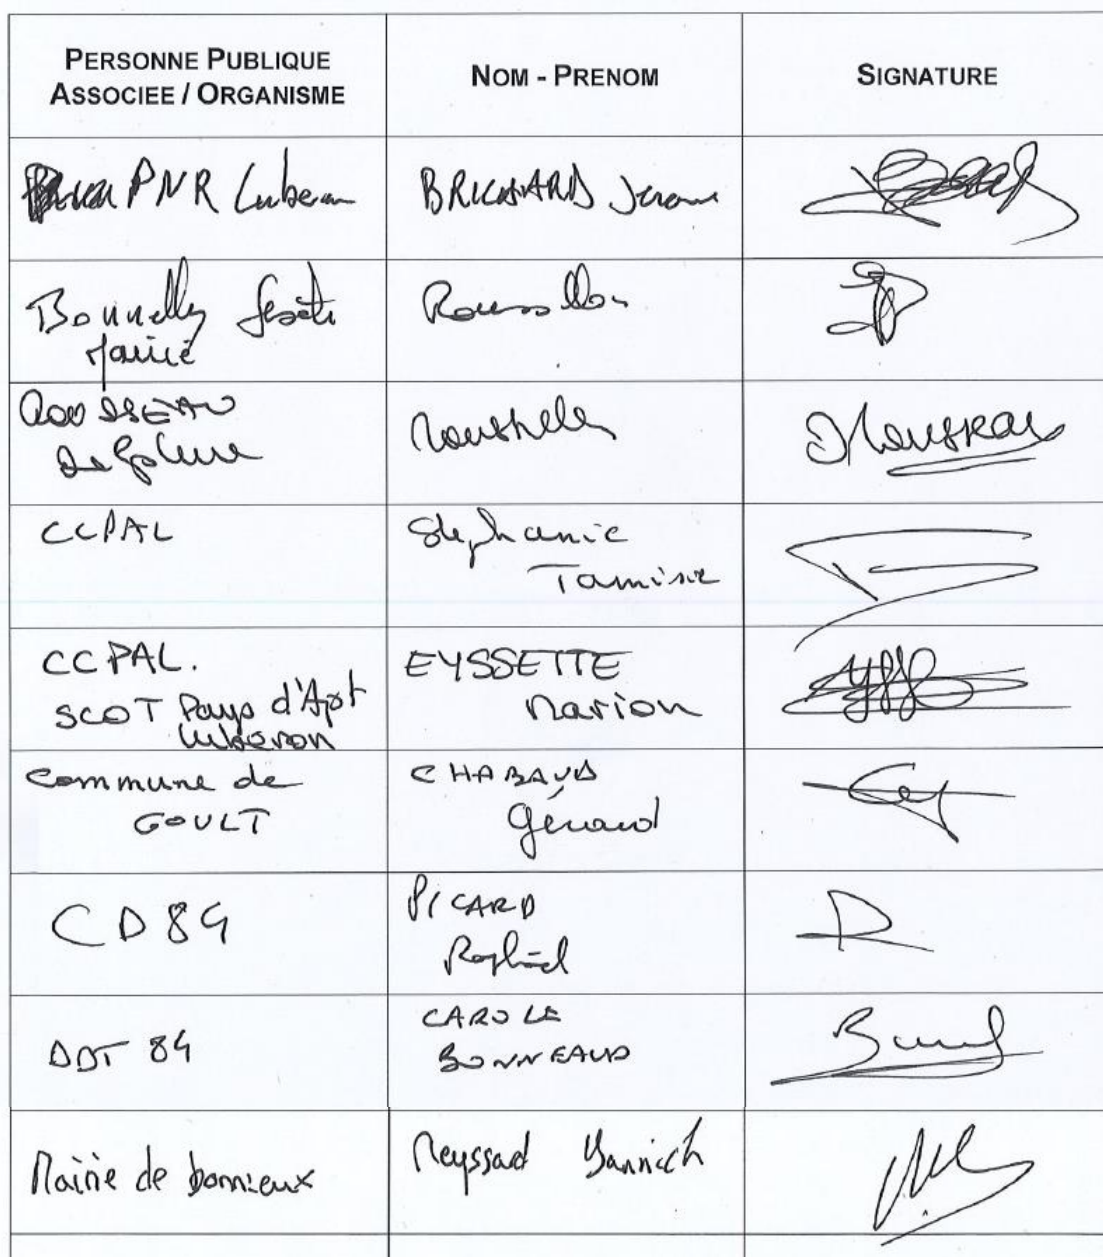 PERSONNE PUBLIQUE
ASSOCIEE / ORGANISME
NOM - PRENOM
SIGNATURE
PNR Luberon
BRICHARD Jerome
Bonnelly
Mairie
Roussillon
ROUSSEAU
Delphine
CCPAL
Stephanie
Tamisier
CCPAL.
SCOT Pays d'Apt
Luberon
EYSSETTE
Marion
Commune de
GOULT
CHABAUD
Gérard
CD84
PICARD
Raphaël
DDT 84
CAROLE
BONNEAUD
Mairie de bonnieux
Meyssard Yannick